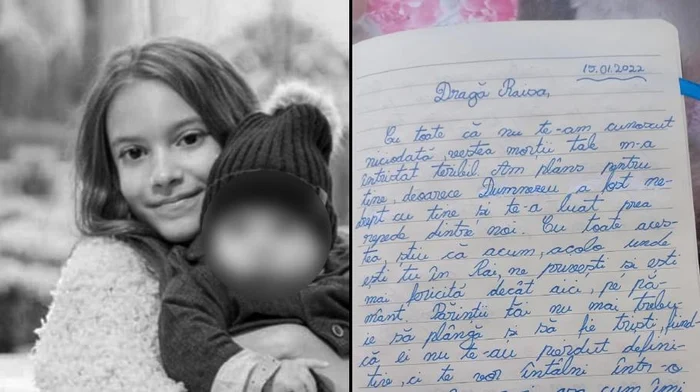 15.01.2022
Dragă Raisa,
Cu toate că nu te-am cunoscut
niciodată, vestea morții tale m-a
întristat teribil. Am plâns pentru
tine, deoarece Dumnezeu a fost ne-
drept cu tine, și te-a luat prea
repede dintre noi. Cu toate aces-
tea, știu că acum, acolo unde
ești tu în Rai, ne privești și ești
mai fericită decât aici, pe pă-
mânt. Părinții tăi nu mai trebu-
ie să plângă și să fie triști, fiind-
că ei nu te-au pierdut defini-
tive, ci te vor întâlni într-o
cum îmi